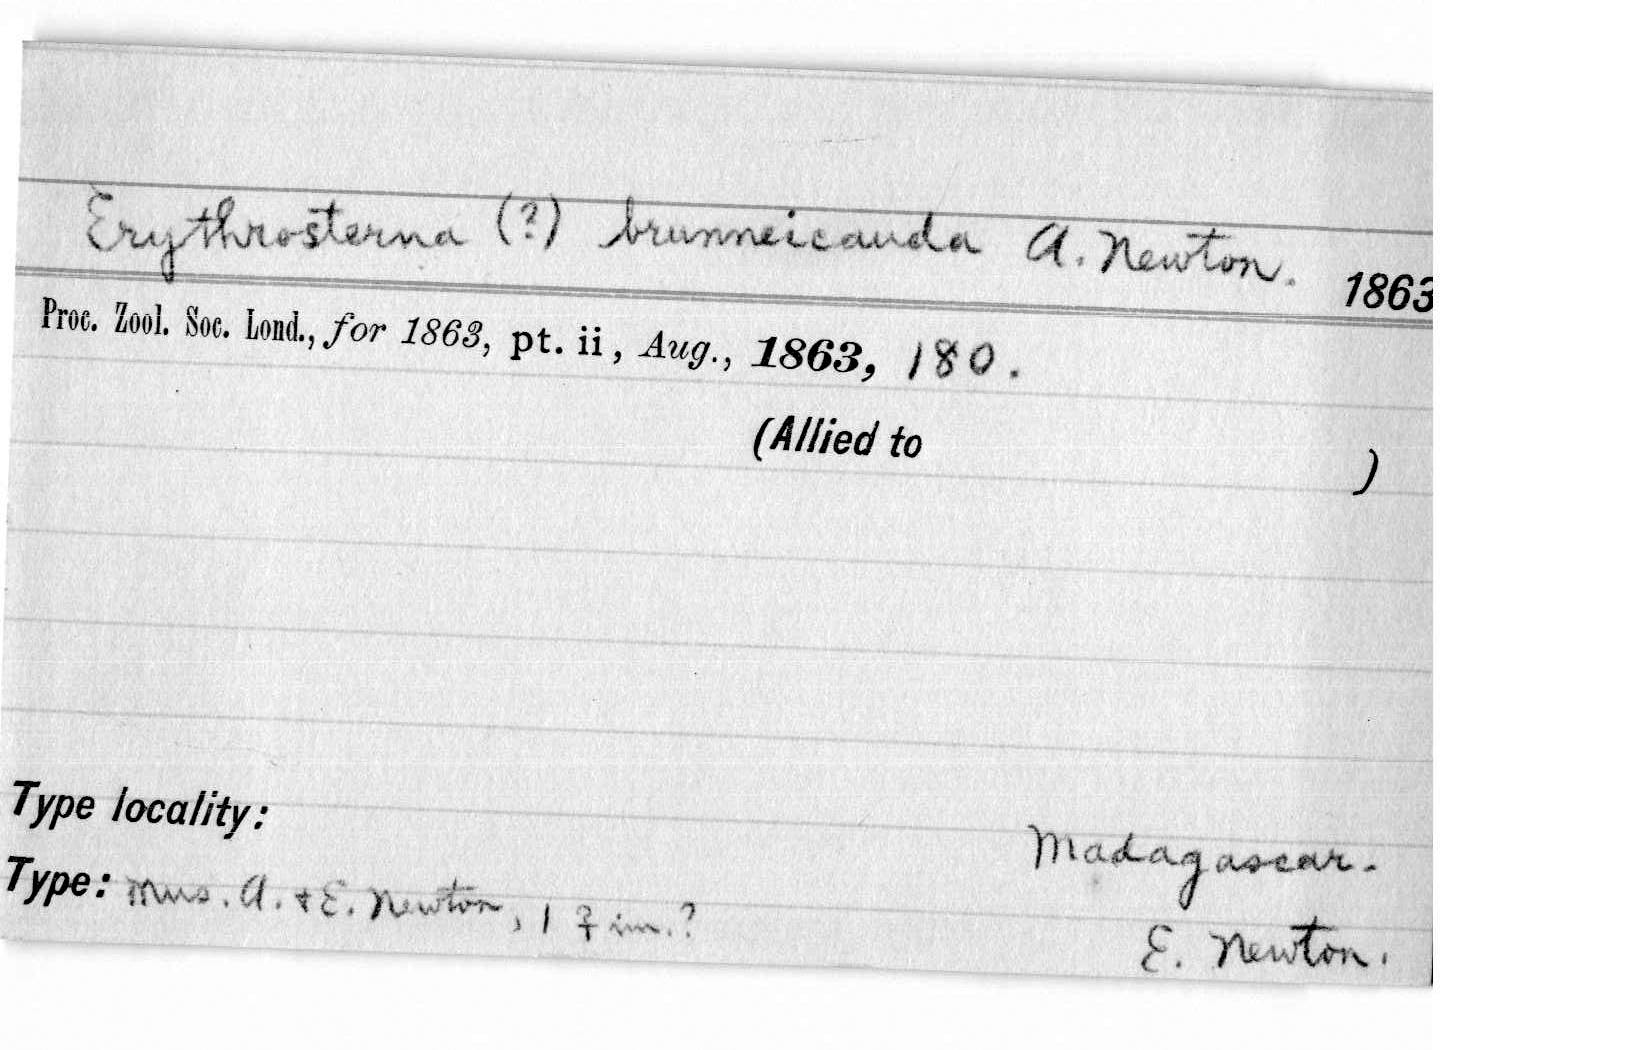 Erythrosterna (?) brunneicauda A. Newton. 1863
Proc. Zool. Soc. Lond., for 1863, pt. ii, Aug., 1863, 180.
(Allied to )
Type locality: Madagascar.
Type: Mus. A. + E. Newton, 1 ♀ im.? E. Newton.